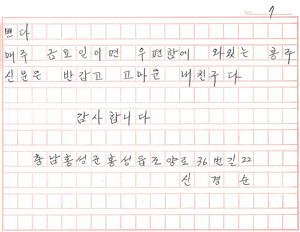 NO. 7
쁘다
매주 금요일이면 우편함에 와있는 홍주
신문은 반갑고 고마운 내친구다
감사합니다
충남홍성군홍성읍조양로 36번길 22
신경순